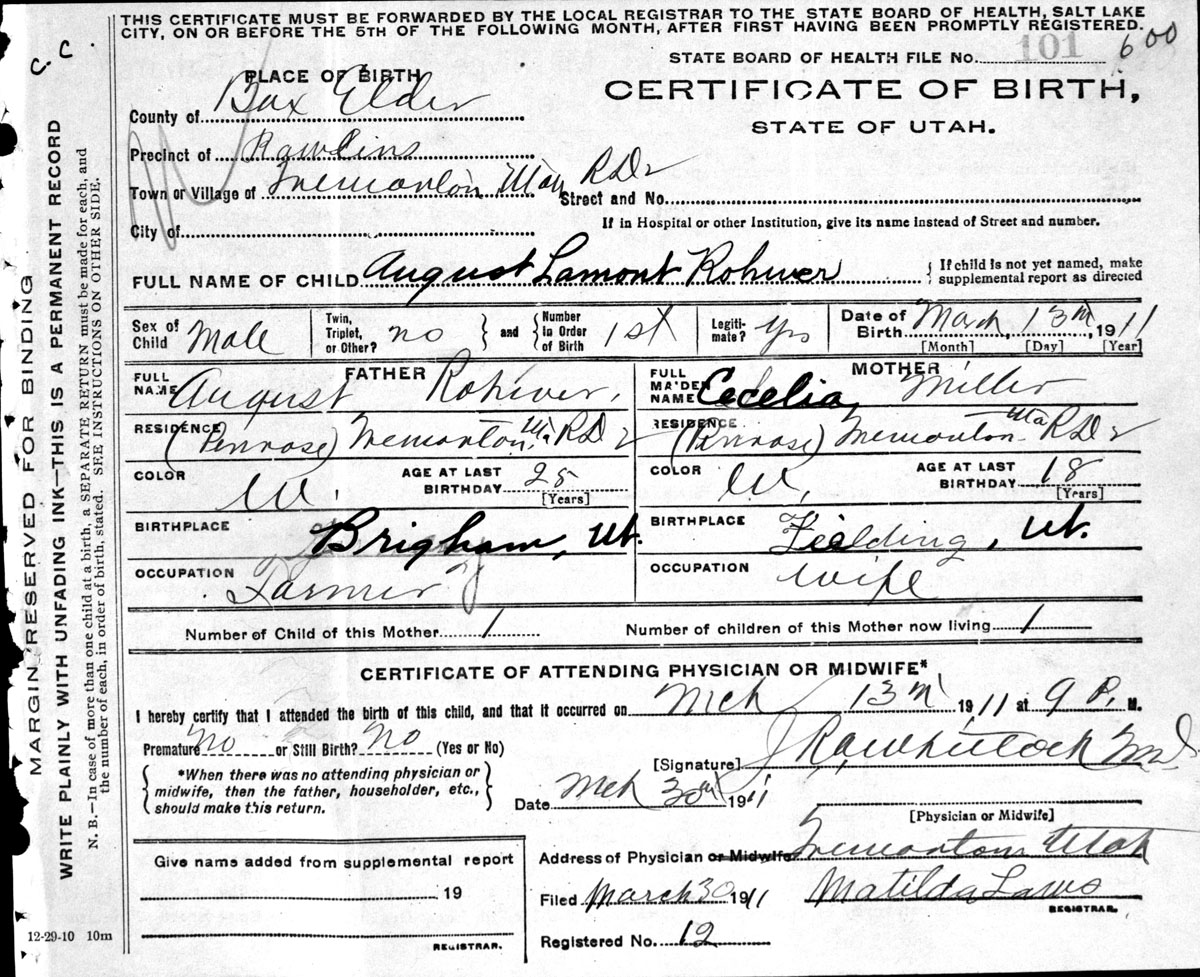 THIS CERTIFICATE MUST BE FORWARDED BY THE LOCAL REGISTRAR TO THE STATE BOARD OF HEALTH, SALT LAKE
CITY, ON OR BEFORE THE 5TH OF THE FOLLOWING MONTH, AFTER FIRST HAVING BEEN PROMPTLY REGISTERED.
C. C
STATE BOARD OF HEALTH FILE No. 101 600
PLACE OF BIRTH
CERTIFICATE OF BIRTH,
STATE OF UTAH.
County of Box Elder
Precinct of Rawlins
Town or Village of Tremonton, Utah RD2
Street and No.
City of
If in Hospital or other Institution, give its name instead of Street and number.
FULL NAME OF CHILD August Lamont Rohwer
{ If child is not yet named, make
supplemental report as directed
Sex of Child Male
Twin, Triplet, or Other? no } and { Number in Order of Birth 1st
Legiti-mate? Yes
Date of Birth March 13th, 1911
[Month] [Day] [Year]
FATHER
FULL NAME August Rohwer.
RESIDENCE (Penrose) Tremonton Uta RD2
COLOR W.
AGE AT LAST BIRTHDAY 25
[Years]
BIRTHPLACE Brigham, Ut.
OCCUPATION Farmer
MOTHER
FULL MAIDEN NAME Cecelia Miller
RESIDENCE (Penrose) Tremonton Uta RD2
COLOR W.
AGE AT LAST BIRTHDAY 18
[Years]
BIRTHPLACE Fielding, Ut.
OCCUPATION Wife
Number of Child of this Mother 1
Number of children of this Mother now living 1
CERTIFICATE OF ATTENDING PHYSICIAN OR MIDWIFE*
I hereby certify that I attended the birth of this child, and that it occurred on Mch 13th 1911 at 9 P. M.
Premature No or Still Birth? No (Yes or No)
{ *When there was no attending physician or
midwife, then the father, householder, etc.,
should make this return. }
[Signature] Whitlock MD
Date Mch 30th 1911
[Physician or Midwife]
Address of Physician or Midwife Tremonton Utah
Filed March 30 1911 Matilda Laws
REGISTRAR.
Registered No. 12
Give name added from supplemental report
19
REGISTRAR.
12-29-10 10m
MARGIN RESERVED FOR BINDING
WRITE PLAINLY WITH UNFADING INK—THIS IS A PERMANENT RECORD
N. B.—In case of more than one child at a birth, a SEPARATE RETURN must be made for each, and
the number of each, in order of birth, stated. SEE INSTRUCTIONS ON OTHER SIDE.